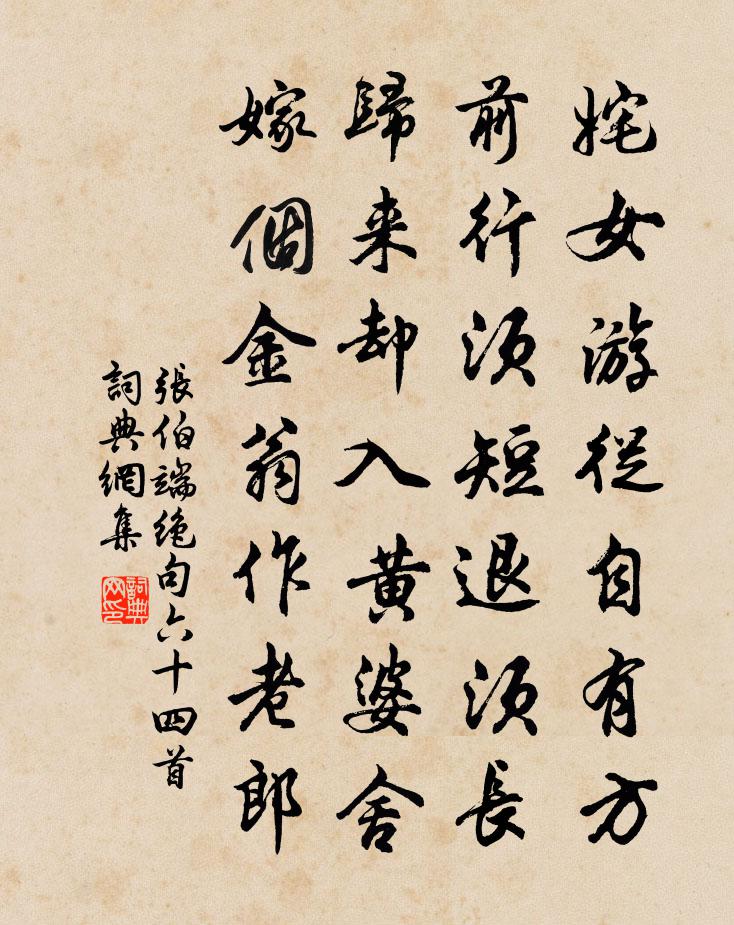 姹女游從自有方
前行須短退須長
歸来却入黄婆舍
嫁個金翁作老郎
張伯端絶句六十四首
詞典網集
詞典網印